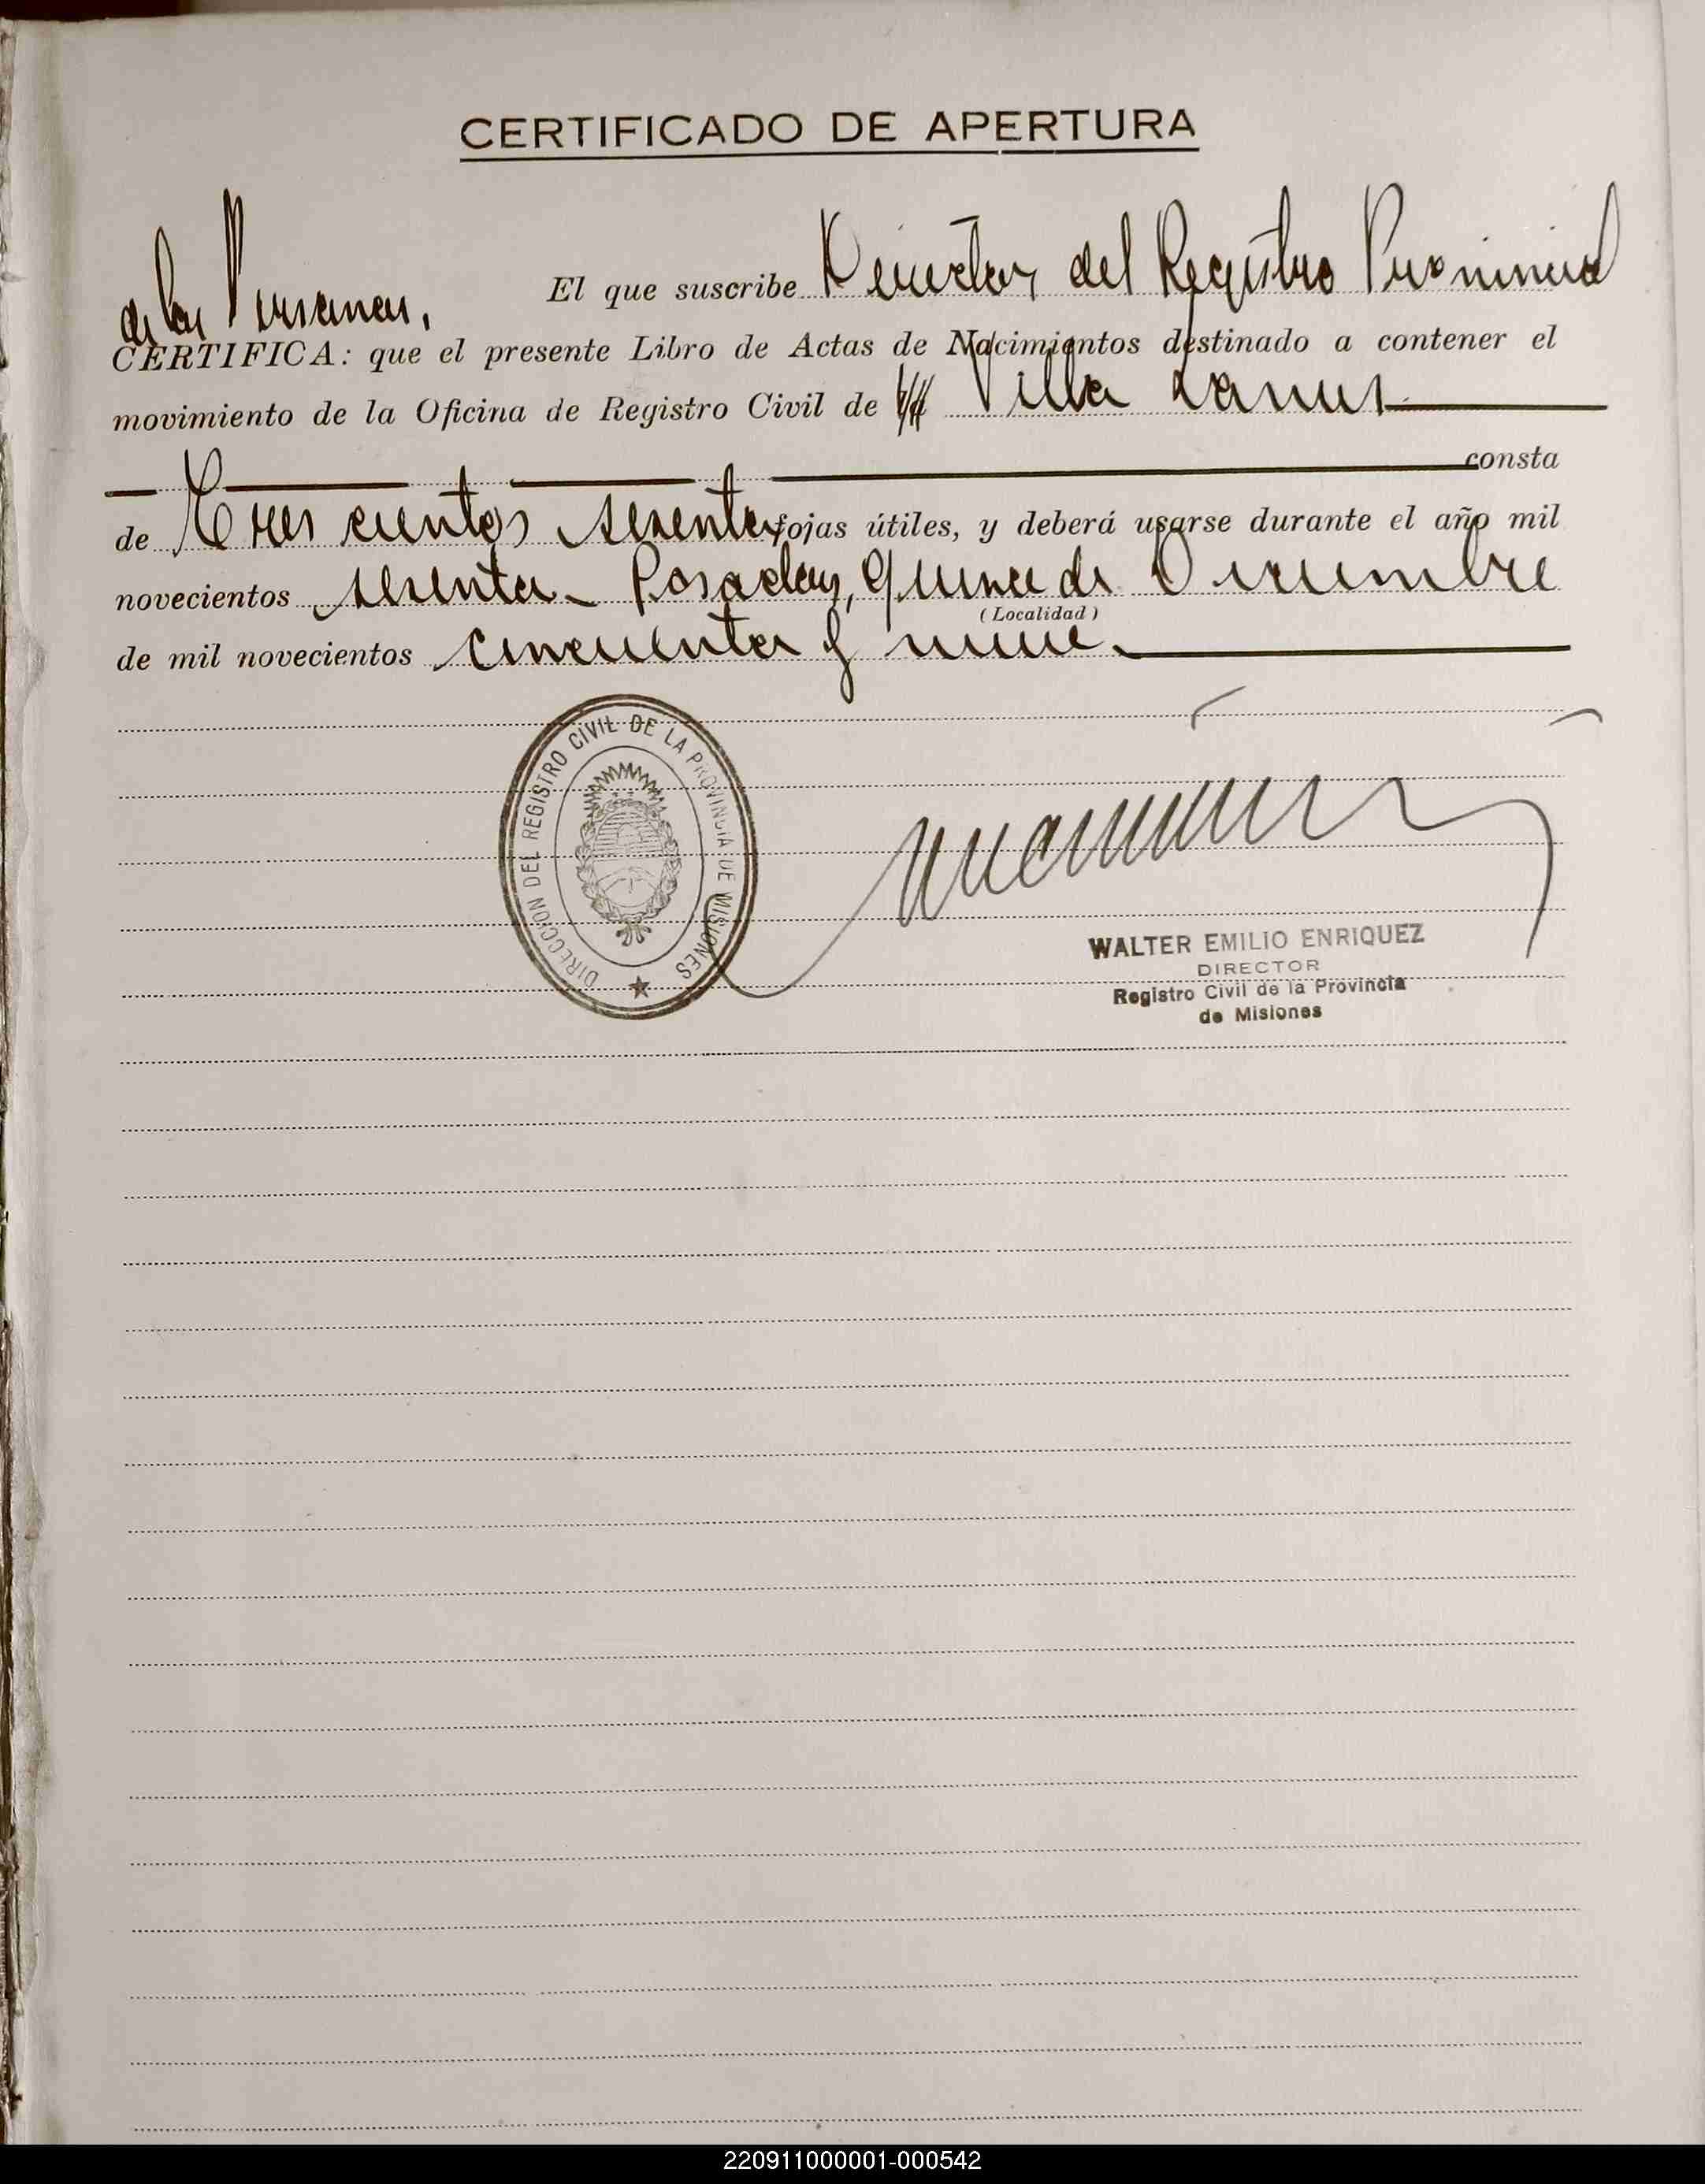 CERTIFICADO DE APERTURA
El que suscribe Director del Registro Provincial
de las Personas,
CERTIFICA: que el presente Libro de Actas de Nacimientos destinado a contener el
movimiento de la Oficina de Registro Civil de Villa Lanus
consta
de Trescientos sesenta fojas útiles, y deberá usarse durante el año mil
novecientos sesenta. Posadas, quince de Diciembre
(Localidad)
de mil novecientos cincuenta y nueve.
DIRECCION DEL REGISTRO CIVIL DE LA PROVINCIA DE MISIONES
WALTER EMILIO ENRIQUEZ
DIRECTOR
Registro Civil de la Provincia
de Misiones
220911000001-000542